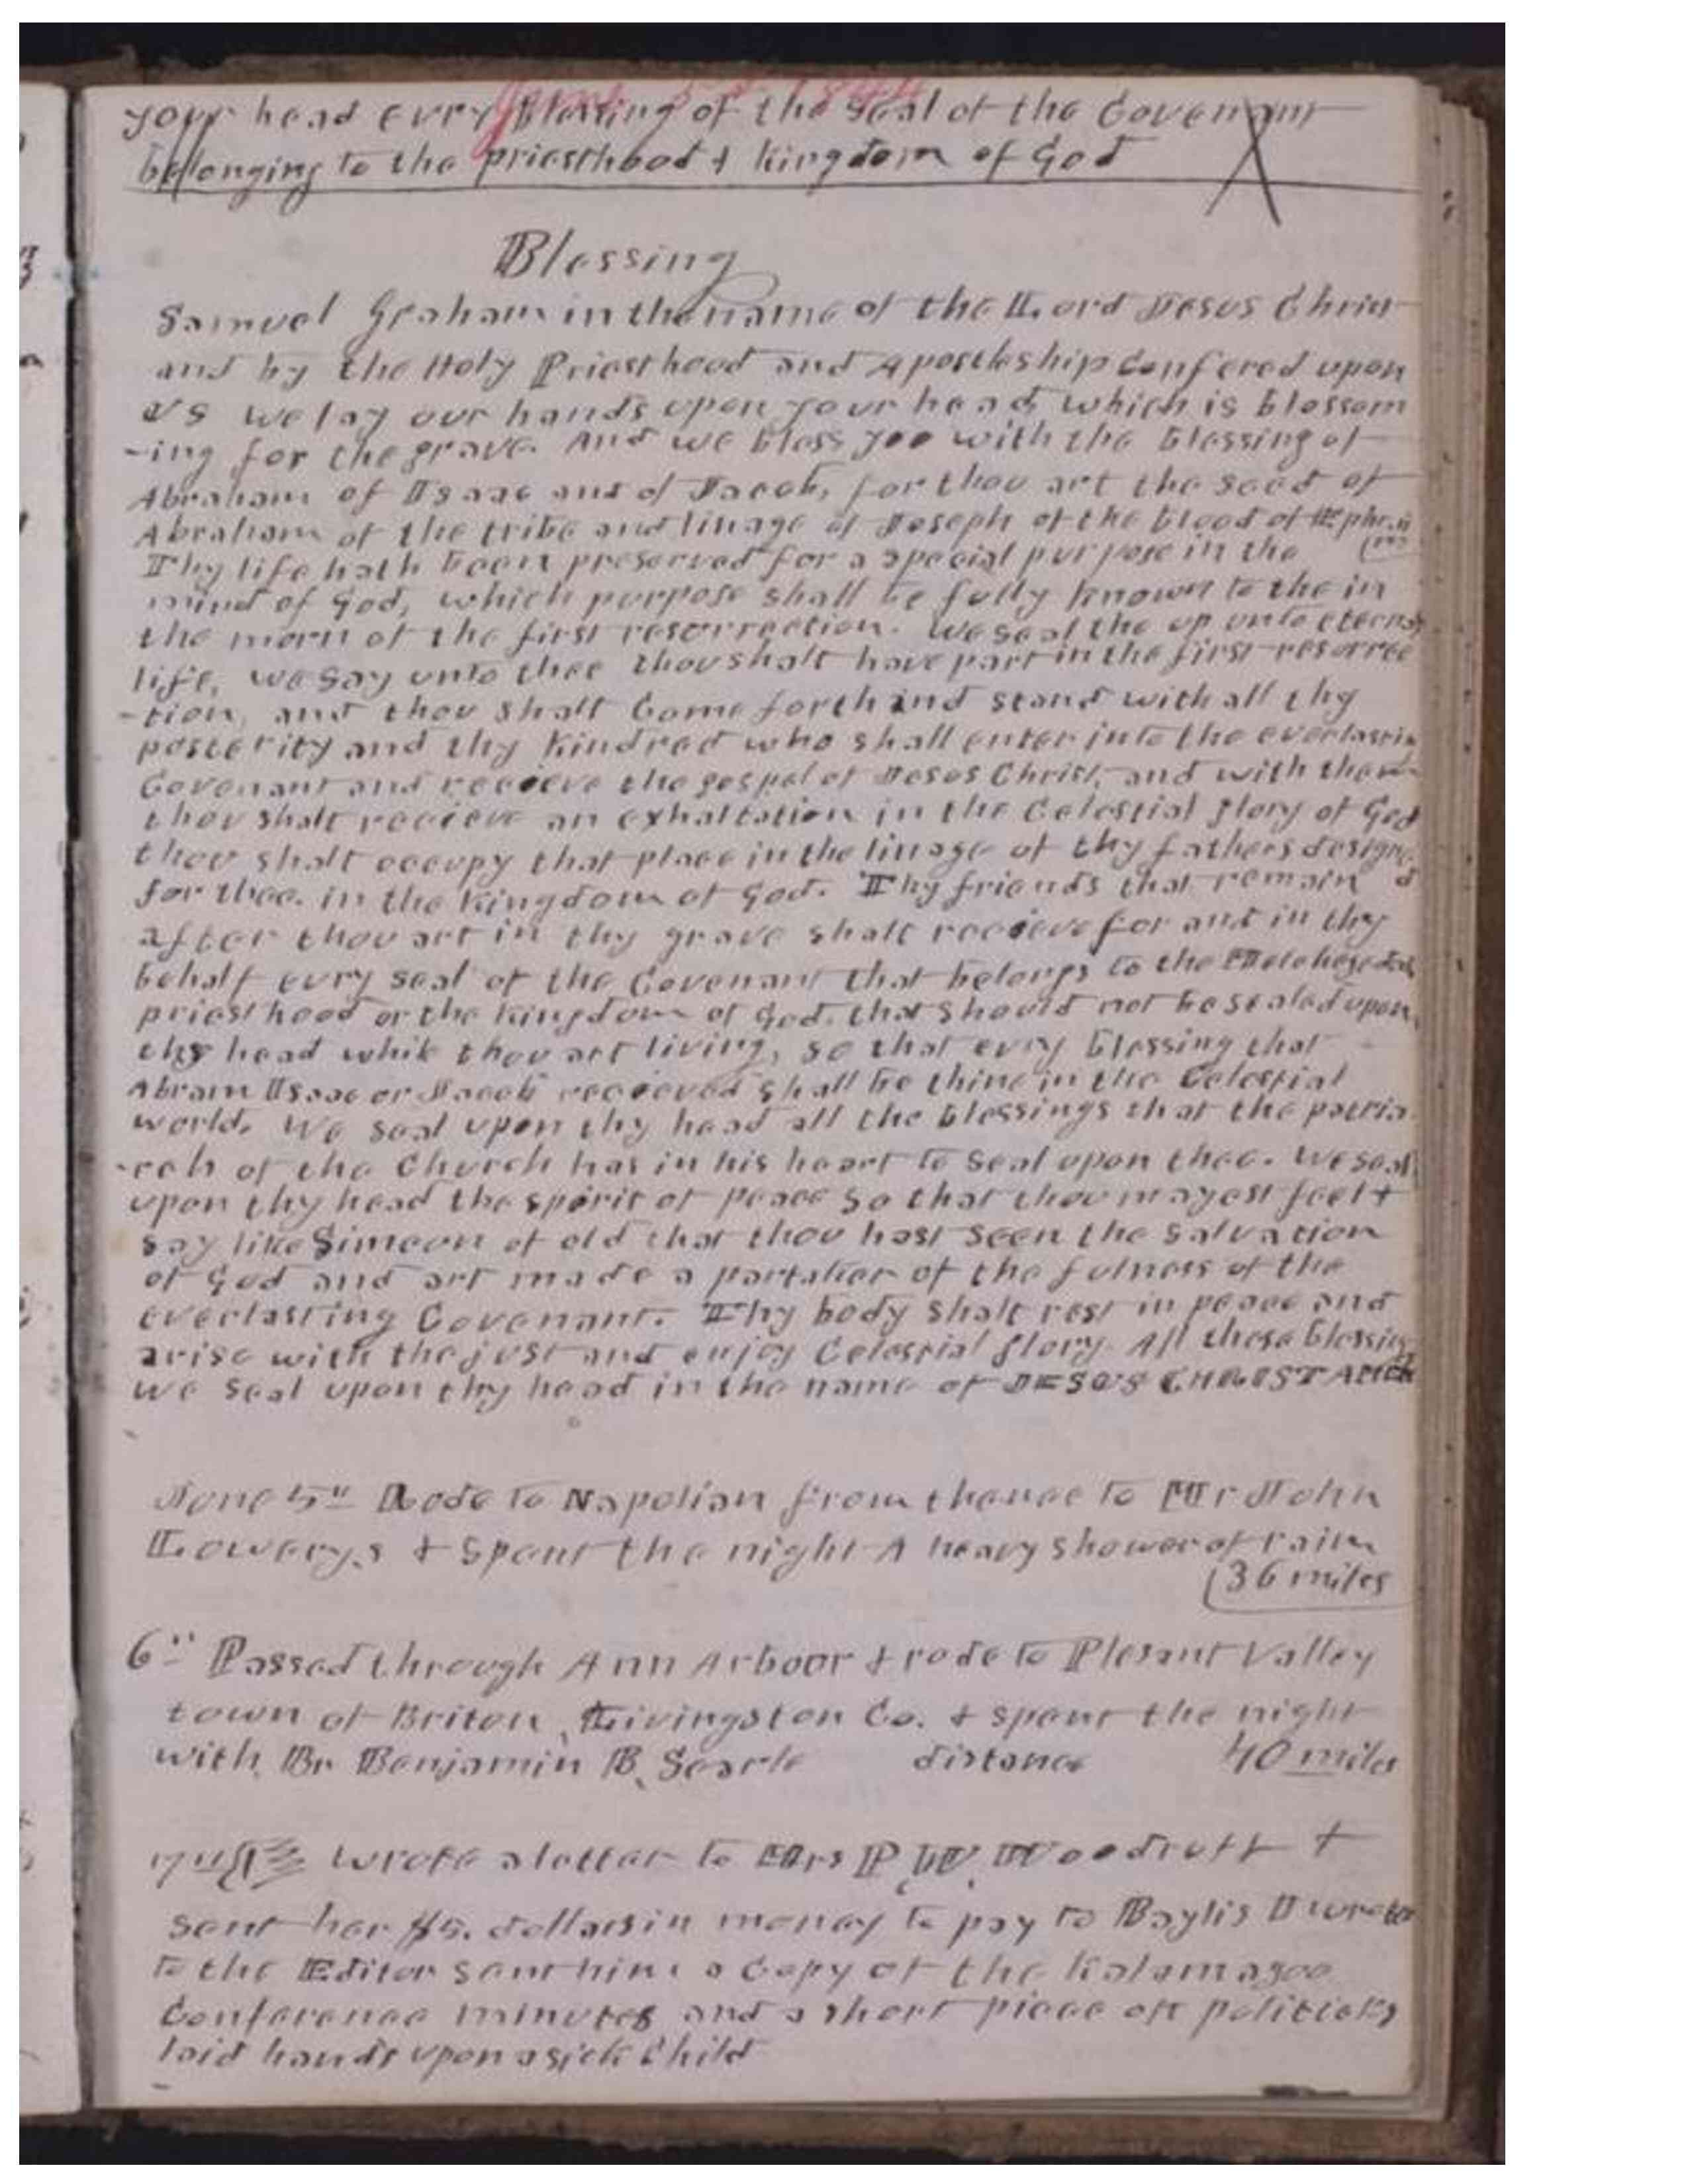 June 5-8 1844
your head evry Blessing of the Seal of the Covenant
belonging to the priesthood & kingdom of God
Blessing
Samuel Graham in the name of the Lord Jesus Christ
and by the Holy Priesthood and Apostleship Confered upon
us we lay our hands upon your head, which is blossom
-ing for the grave. And we bless you with the blessing of
Abraham of Isaac and of Jacob, for thou art the seed of
Abraham of the tribe and linage of Joseph of the blood of Ephrai
(m
Thy life hath been preserved for a special purpose in the
mind of God, which purpose shall be fully known to the in
the morn of the first resurrection. We seal the up unto eternal
life, we say unto thee thou shalt have part in the first resurrec
-tion, and thou shalt Come forth and stand with all thy
posterity and thy kindred who shall enter into the everlastin
Covenant and recieve the gospel of Jesus Christ, and with them
thou shalt recieve an exhaltation in the Celestial glory of God
thou shalt occupy that place in the linage of thy fathers designe
d
for thee. in the kingdom of God. Thy friends that remain
after thou art in thy grave shall recieve for and in thy
behalf evry seal of the Covenant that belongs to the Melchezedek
priesthood or the kingdom of God. that should not be sealed upon
thy head while thou art living, so that evry blessing that
Abram Isaac or Jacob recieved shall be thine in the Celestial
world. We seal upon thy head all the blessings that the patria
-rch of the Church has in his heart to seal upon thee. We seal
upon thy head the spirit of peace so that thou mayest feel &
say like Simeon of old that thou hast seen the salvation
of God and art made a partaker of the fulness of the
everlasting Covenant. Thy body shall rest in peace and
arise with the just and enjoy Celestial glory. All these blessings
we seal upon thy head in the name of JESUS CHRIST AMEN
June 5th Rode to Napolian from thence to Mr John
Lowery,s & Spent the night A heavy shower of rain
36 miles
6th Passed through Ann Arboor & rode to Plesant Valley
town of Briton, Livingston Co. & spent the night
with Br Benjamin B, Searle distance 40 miles
7th wrote a letter to Mrs P. W. Woodruff &
sent her $5. dollars in money to pay to Baylis I wrote
to the Editor sent him a Copy of the Kalamazoo
Conference minutes and a short piece on politicks
laid hands upon a sick Child